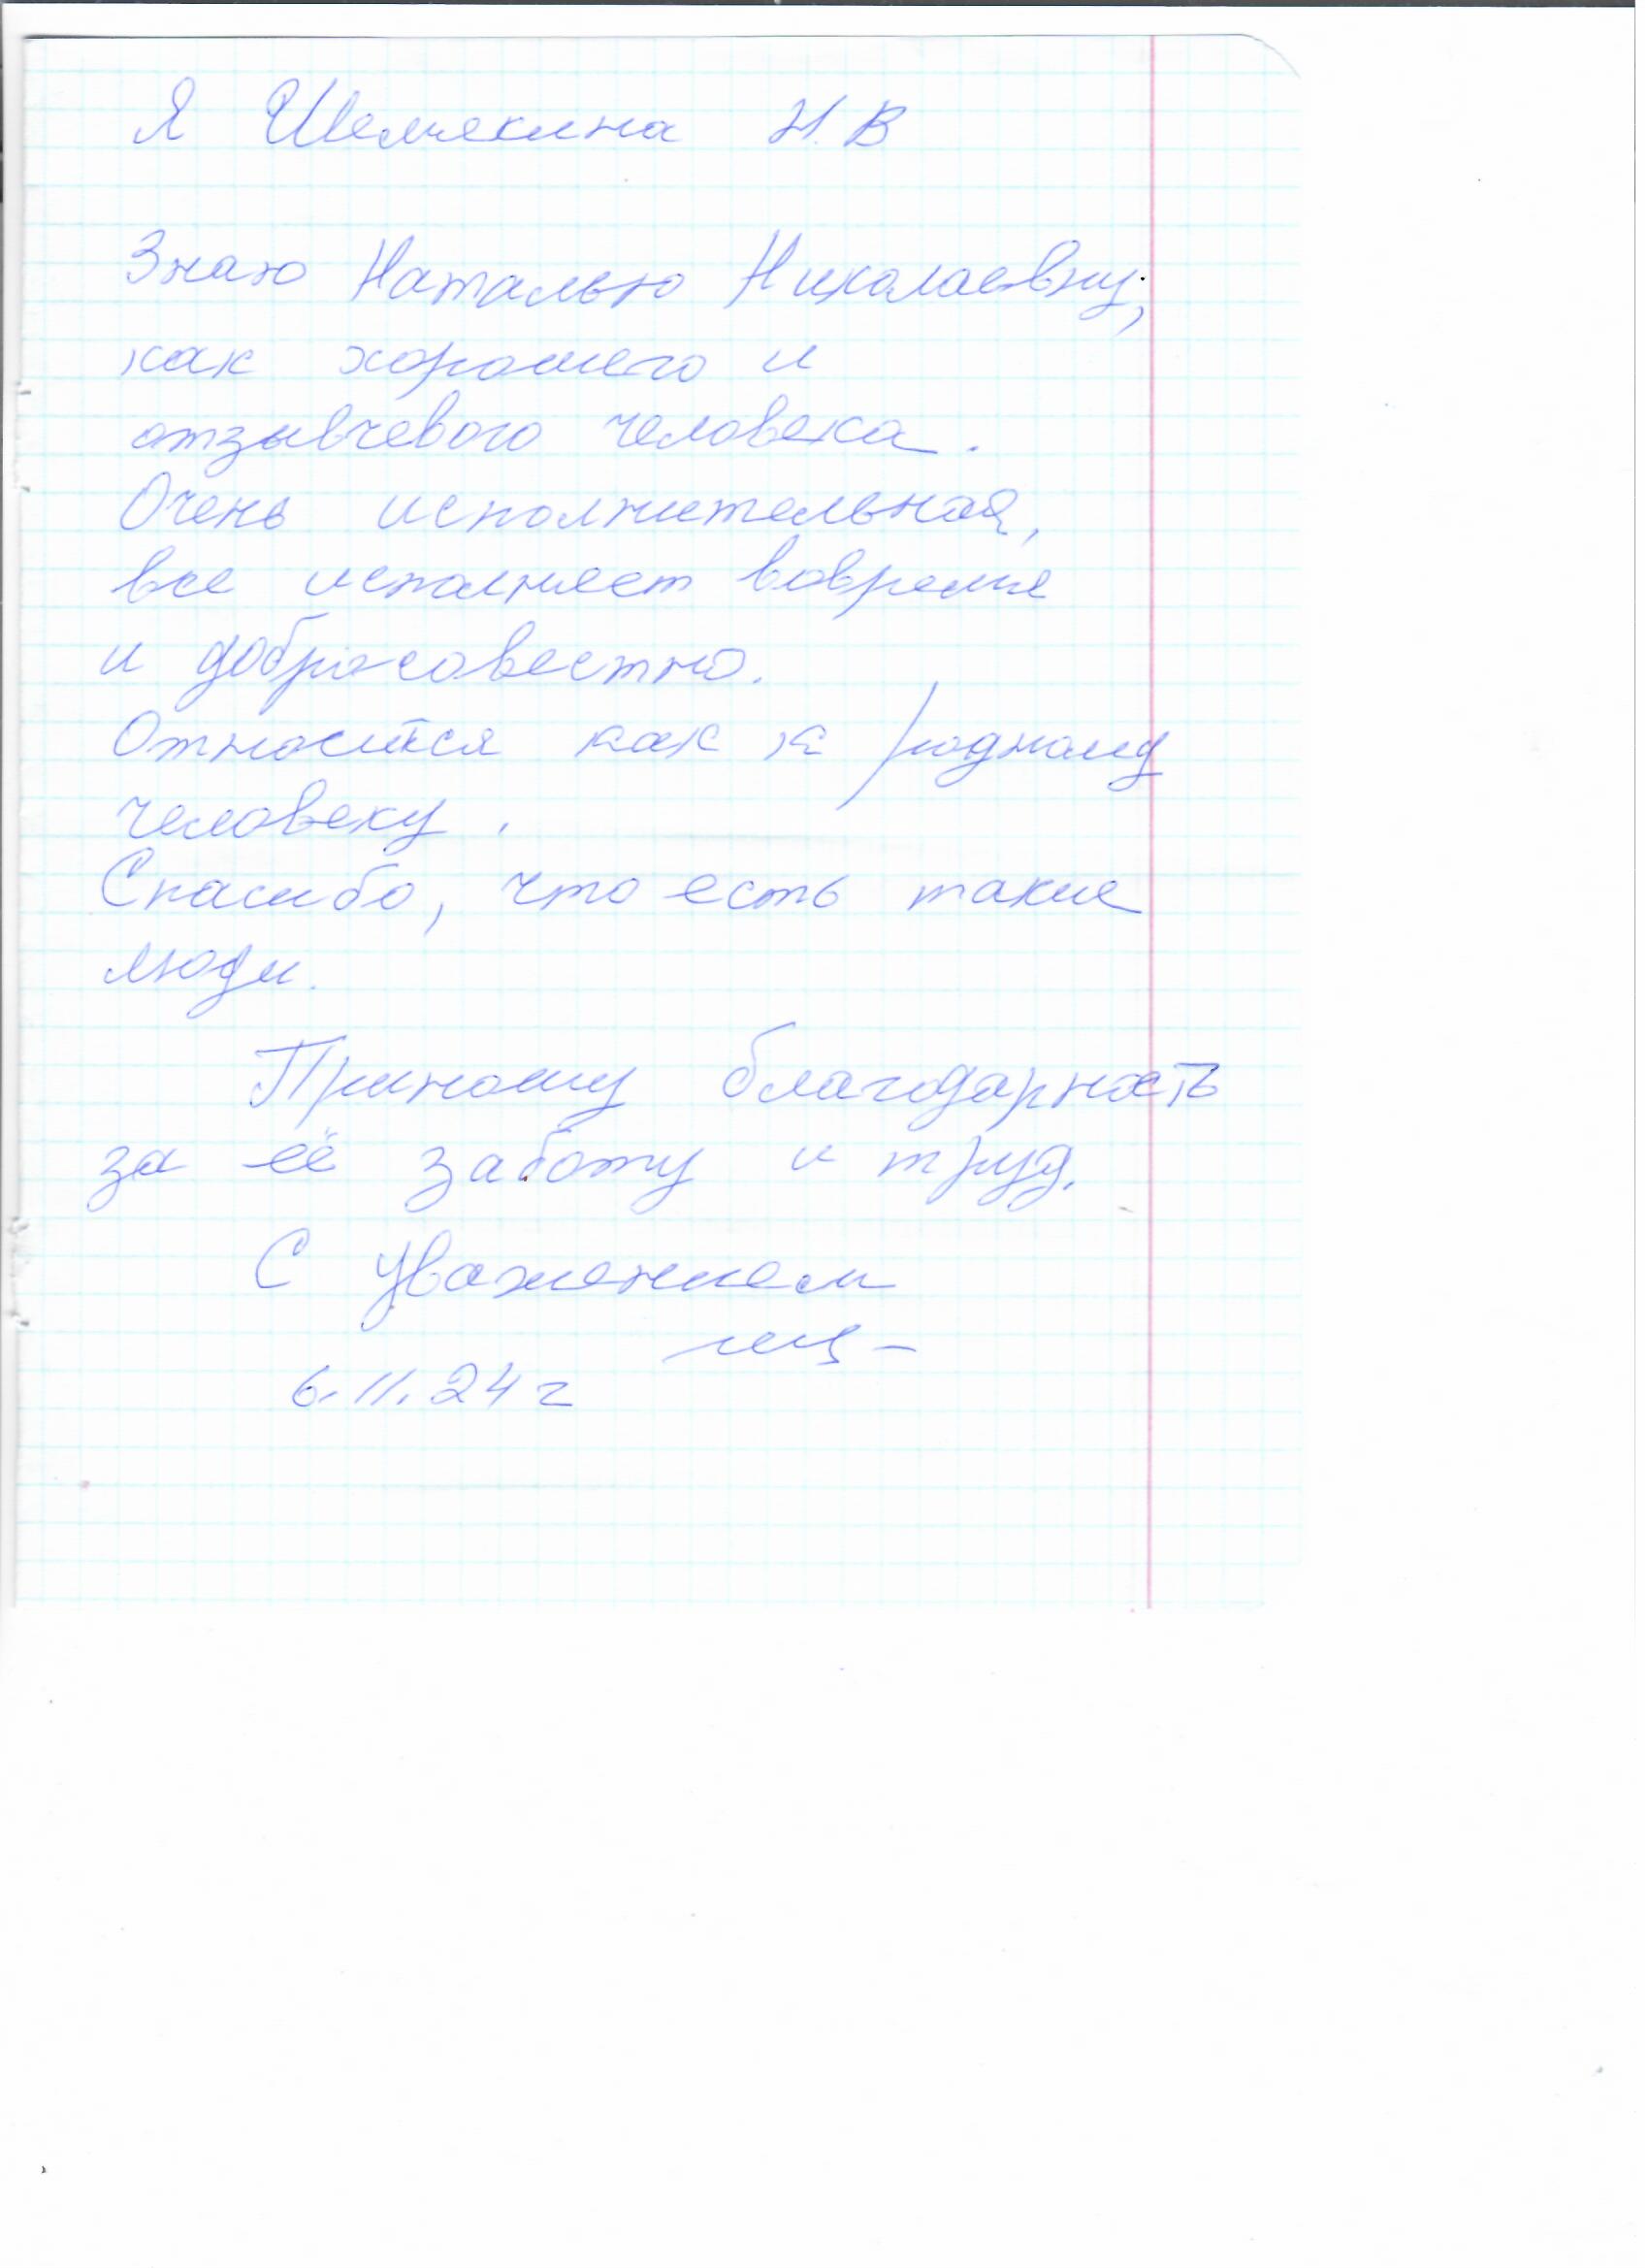 Я Шемякина Н.В
Знаю Наталью Николаевну,
как хорошего и
отзывчевого человека.
Очень исполнительная,
все исполняет вовремя
и добросовестно.
Относится как к родному
человеку.
Спасибо, что есть такие
люди.
Приношу благодарность
за её заботу и труд.
С уважением
6.11.24 г